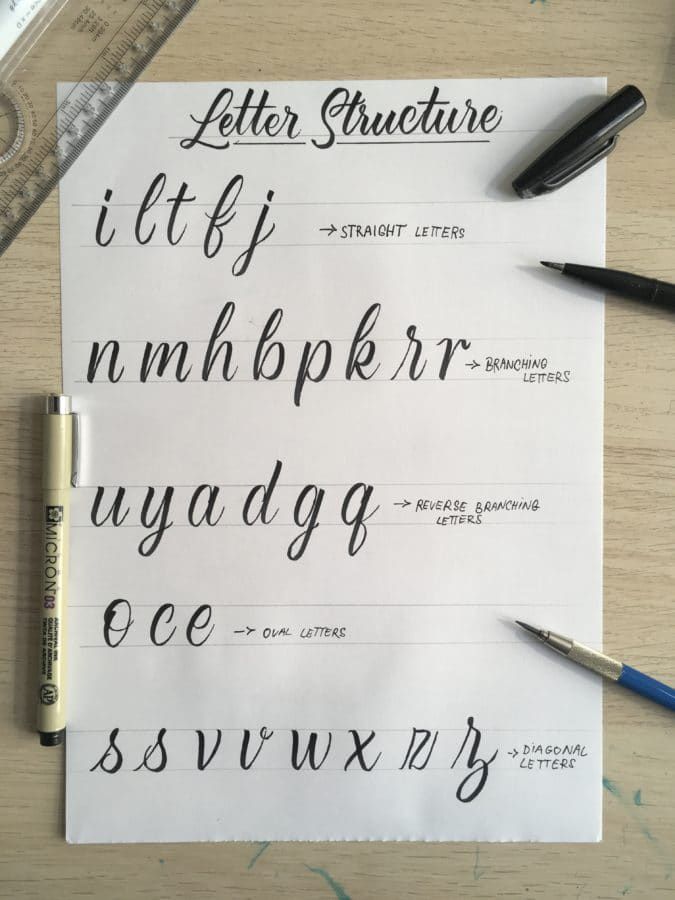 Letter Structure
i l t f j → STRAIGHT LETTERS
n m h b p k r r → BRANCHING
LETTERS
u y a d g q → REVERSE BRANCHING
LETTERS
o c e → OVAL LETTERS
s s v v w x z z → DIAGONAL
LETTERS
MICRON 03
ARCHIVAL INK